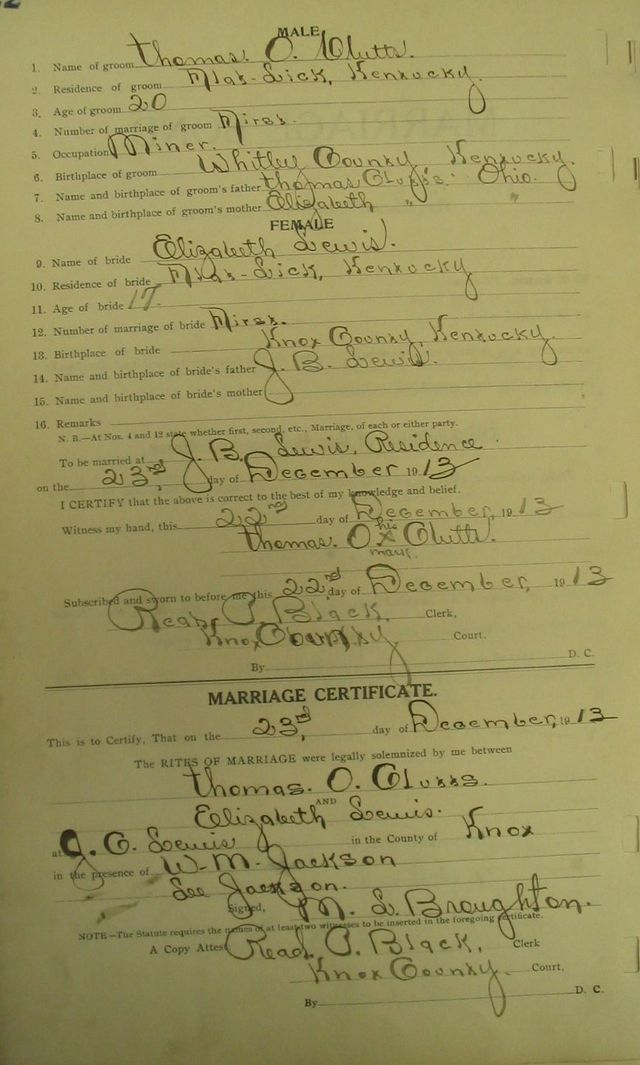 MALE
1. Name of groom Thomas. O. Clutts.
2. Residence of groom Flat-Lick, Kentucky.
3. Age of groom 20
4. Number of marriage of groom First.
5. Occupation Miner.
6. Birthplace of groom Whitley County, Kentucky.
7. Name and birthplace of groom's father Thomas Ohio.
8. Name and birthplace of groom's mother Elizabeth " "
FEMALE
9. Name of bride Elizabeth Lewis.
10. Residence of bride Flat-Lick, Kentucky
11. Age of bride 17.
12. Number of marriage of bride First.
13. Birthplace of bride Knox County, Kentucky
14. Name and birthplace of bride's father J. B. Lewis.
15. Name and birthplace of bride's mother
16. Remarks
N. B.—At Nos. 4 and 12 state whether first, second, etc., Marriage, of each or either party.
To be married at J. B. Lewis, Residence.
on the 23rd, day of December 1913
I CERTIFY that the above is correct to the best of my knowledge and belief.
Witness my hand, this 22nd day of December, 1913
his
Thomas. O X Clutts.
mark.
Subscribed and sworn to before me this 22nd day of December, 1913
Read P. Black, Clerk,
Knox County. Court.
By D. C.
MARRIAGE CERTIFICATE.
This is to Certify, That on the 23rd, day of December, 1913
The RITES OF MARRIAGE were legally solemnized by me between
Thomas. O. Clutts.
AND
Elizabeth Lewis.
at J. C. Lewis in the County of Knox
in the presence of W. M. Jackson
Lee Jackson.
Signed, M. L. Broughton.
NOTE—The Statute requires the names of at least two witnesses to be inserted in the foregoing certificate.
A Copy Attest Read P. Black, Clerk
Knox County. Court.
By D. C.